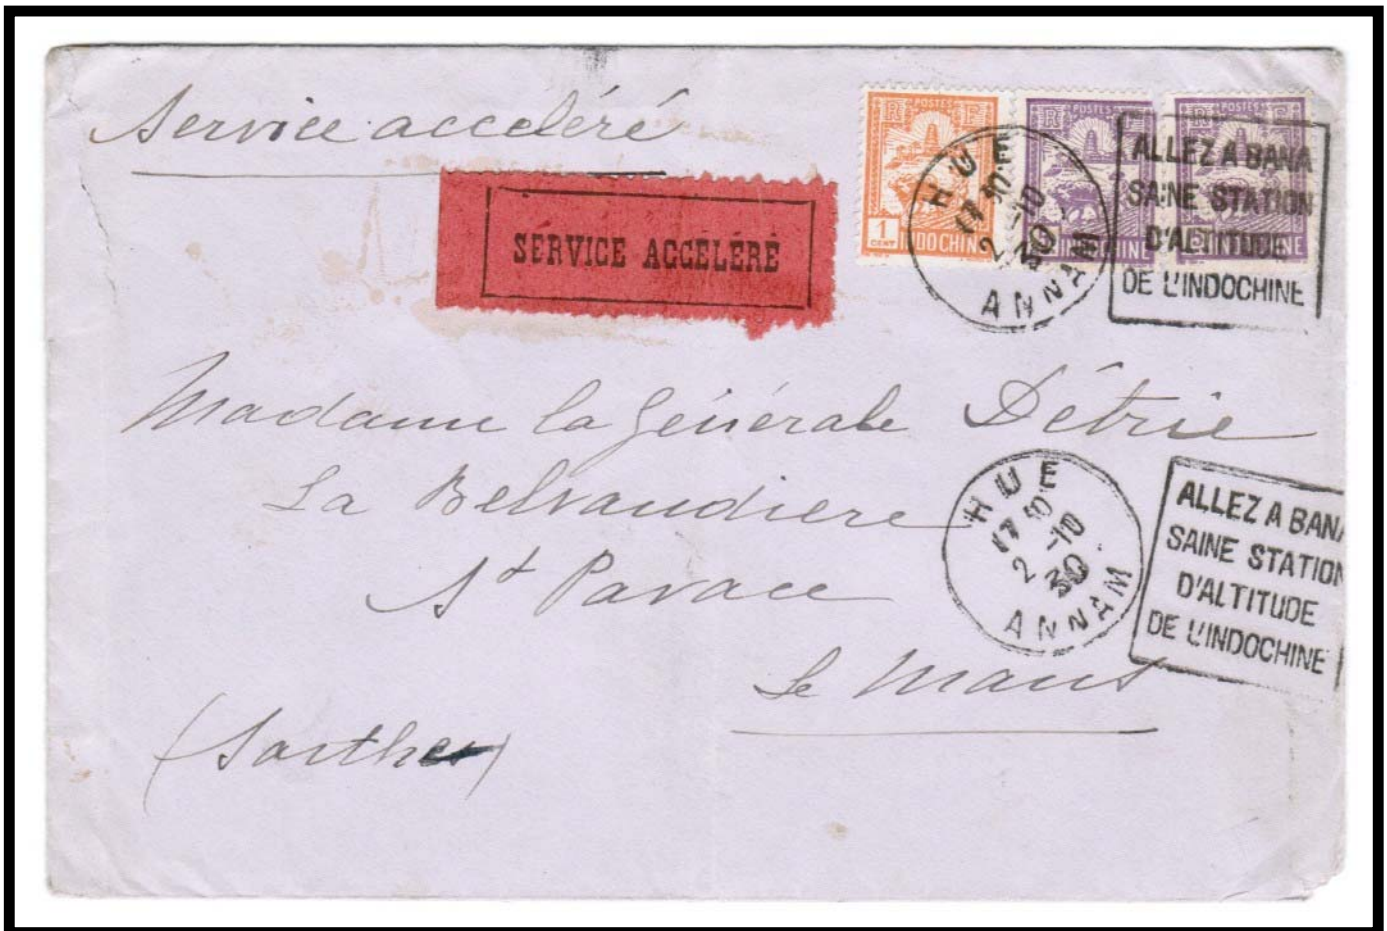 Service accéléré
SERVICE ACCÉLÉRÉ
POSTES
R F
1
CENT
INDOCHINE
POSTES
R F
POSTES
R F
HUE
17 30
2 -10
30
ANNAM
ALLEZ A BANA
SAINE STATION
D'ALTITUDE
DE L'INDOCHINE
Madame la Générale Détrie
La Belvaudiere
St Pavace
Le Mans
(Sarthe)
HUE
2 -10
30
ANNAM
ALLEZ A BANA
SAINE STATION
D'ALTITUDE
DE L'INDOCHINE